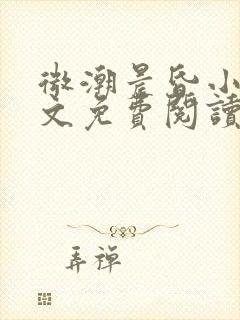 微潮晨昏小
文免費閱讀
弄禪